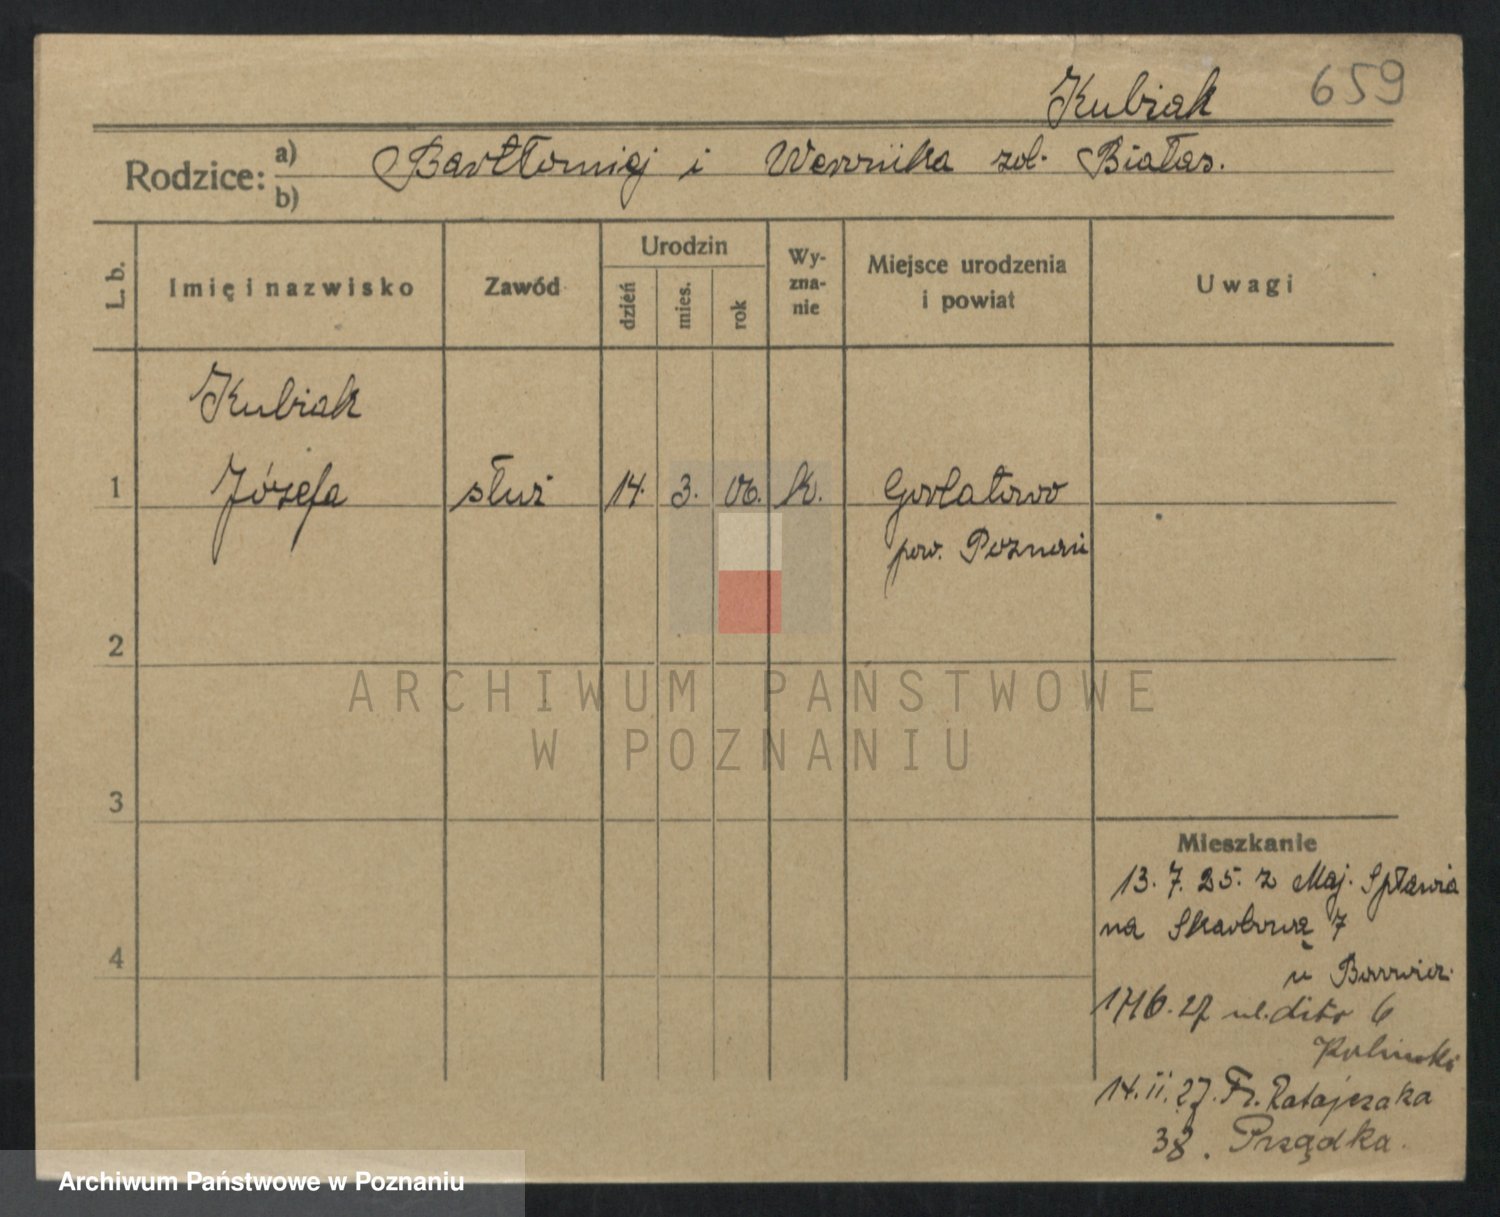 Kubiak 659
Rodzice: a) b) Bartłomiej i Weronika zd. Białas.
L. b. Imię i nazwisko Zawód Urodzin dzień mies. rok Wyznanie Miejsce urodzenia i powiat Uwagi
Kubiak
1 Józefa służ 14. 3. 06. k. Gortatowo
pow. Poznań
2
ARCHIWUM PAŃSTWOWE
W POZNANIU
3
Mieszkanie
13. 7. 25. z Maj. Spławia
na Skarbową 7
4
u
27 ul. dito 6
14. II. 27. Fr. Ratajczaka
38. Prządka.
Archiwum Państwowe w Poznaniu